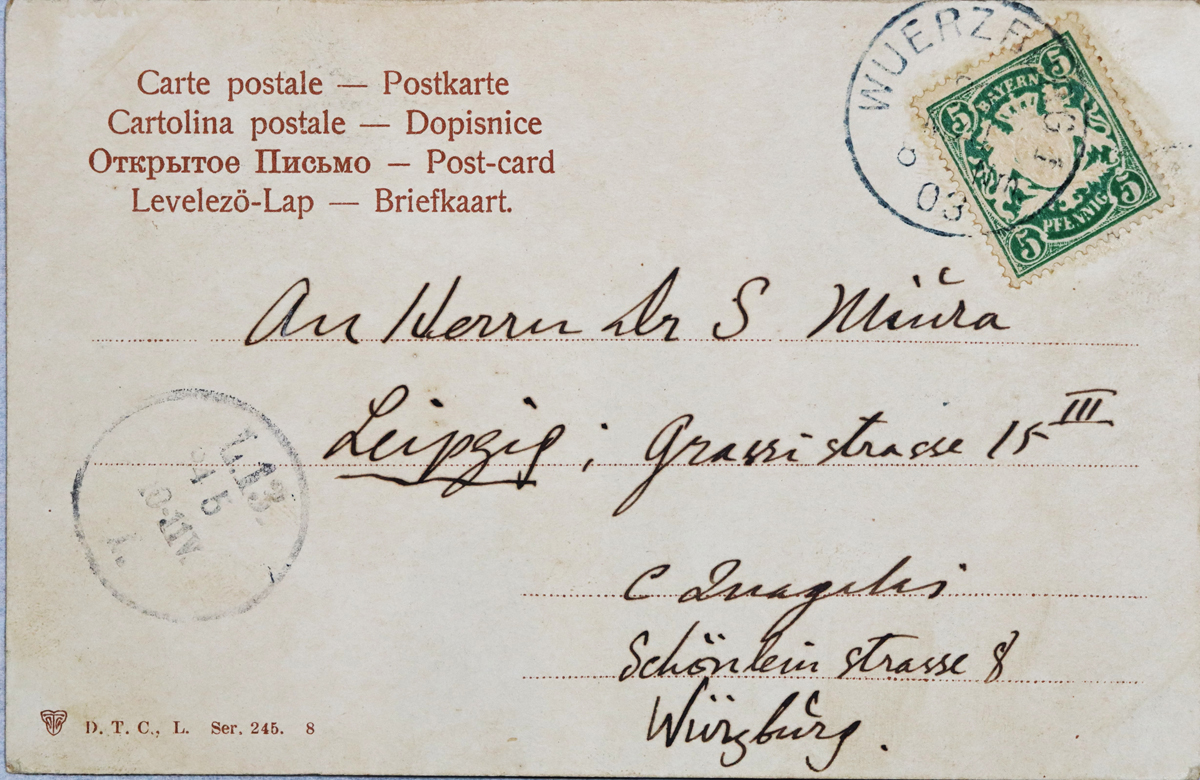 Carte postale — Postkarte
Cartolina postale — Dopisnice
Открытое Письмо — Post-card
Levelező-Lap — Briefkaart.
WUERZB
03
5 BAYERN 5
5 PFENNIG 5
An Herrn Dr S Miura
Leipzig; Grassi strasse 15 III
L.13.
5
C
Schönlein strasse 8
Würzburg.
D. T. C., L. Ser. 245. 8